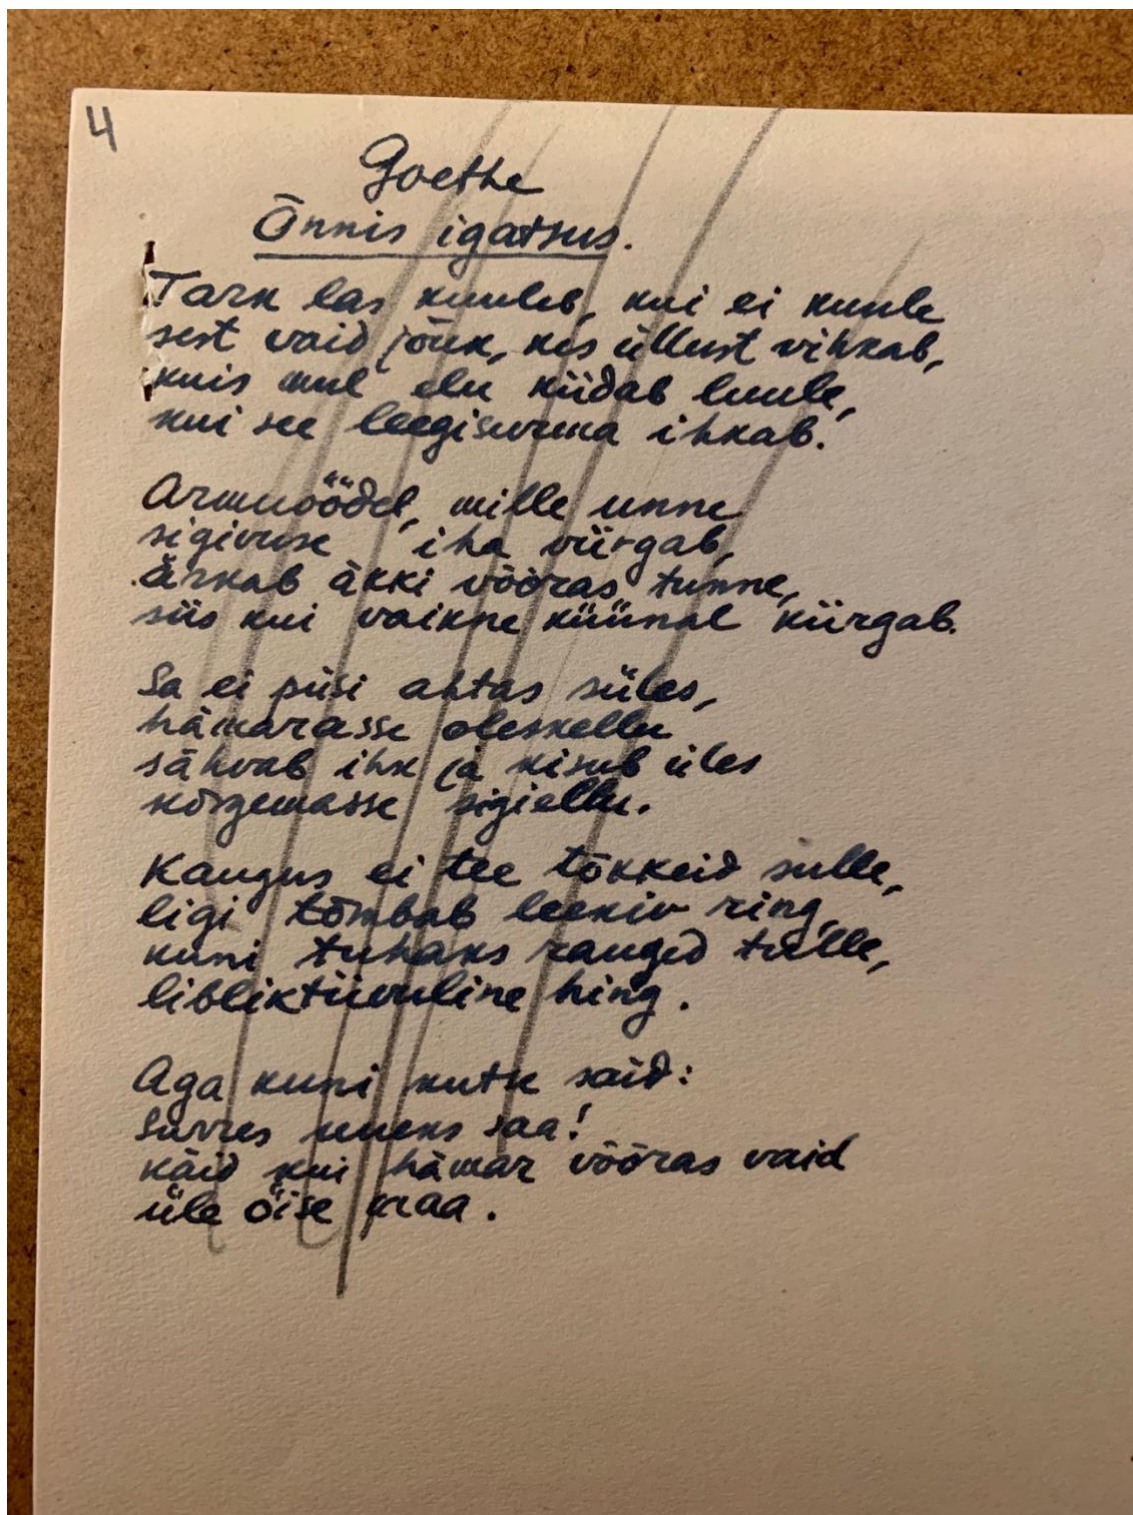 4
Goethe
Õnnis igatsus.
Tark las kuuleb, kui ei kuule
sest vaid jõuk, kes üllust vihkab,
kuis mul elu kiidab luule,
kui see leegisurma ihkab.
Armuöödel, mille unne
sigivuse iha viirgab,
ärkab äkki võõras tunne,
siis kui vaikne küünal kiirgab.
Sa ei püsi ahtas süles,
hämarasse oleskellu
sähvab ihk ja kisub üles
kõrgemasse sigiellu.
Kaugus ei tee tõkkeid sulle,
ligi tõmbab leekiv ring,
kuni tuhaks raugед tulle,
libliktiivuline hing.
Aga kuni kutse said:
Surres uueks saa!
käid kui hämar võõras vaid
üle öise maa.